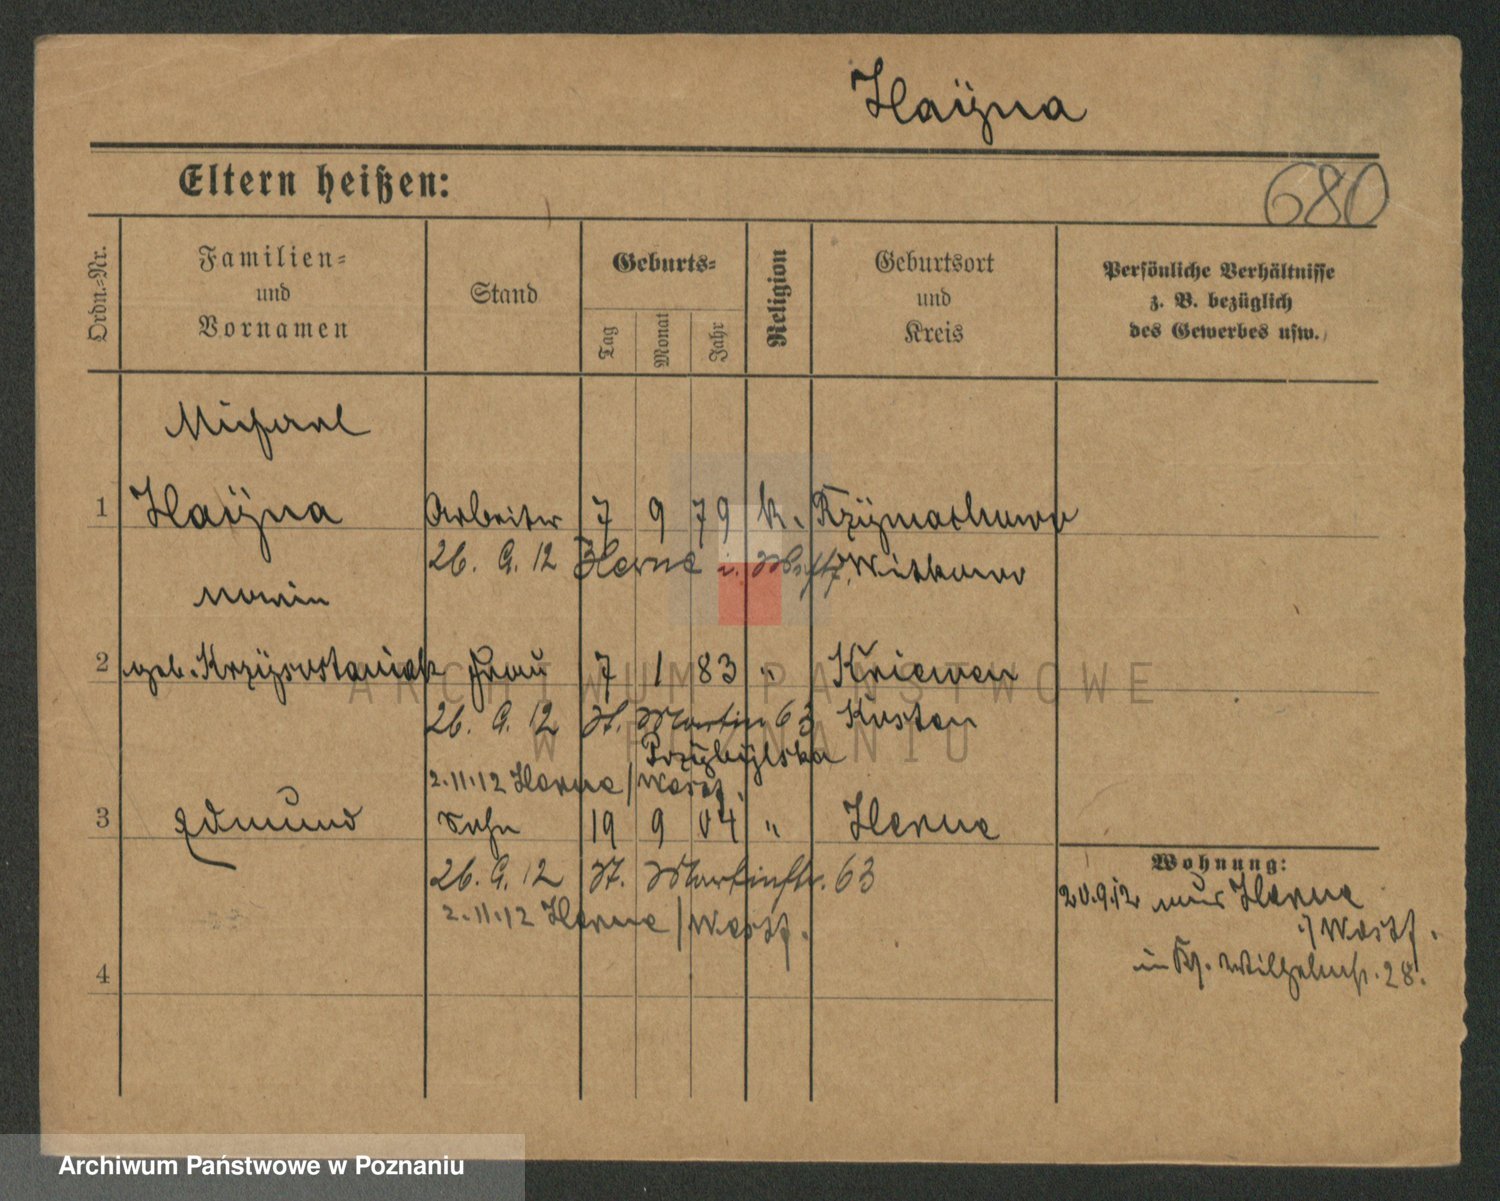 Hayna
Eltern heißen:
680
Ordn.-Nr.
Familien-
und
Vornamen
Stand
Geburts-
Tag
Monat
Jahr
Religion
Geburtsort
und
Kreis
Persönliche Verhältnisse
z. B. bezüglich
des Gewerbes usw.
Michael
1 Hayna Arbeiter 7 9 79 k.
26. 9. 12 Herne i. Westf. Witkowo
Maria
2 geb. Frau 7 1 83 " Kriewen
26. 9. 12 St. Martin 63 Kosten
Przybylska
2.11.12 Herne / Westf.
3 Edmund Sohn 19 9 04 " Herne
26. 9. 12 St. Martinstr. 63
2.11.12 Herne / Westf.
4
Wohnung:
20.9.12 aus Herne
i/ Westf.
in Wilhelmstr. 28.
ARCHIWUM PAŃSTWOWE
W POZNANIU
Archiwum Państwowe w Poznaniu